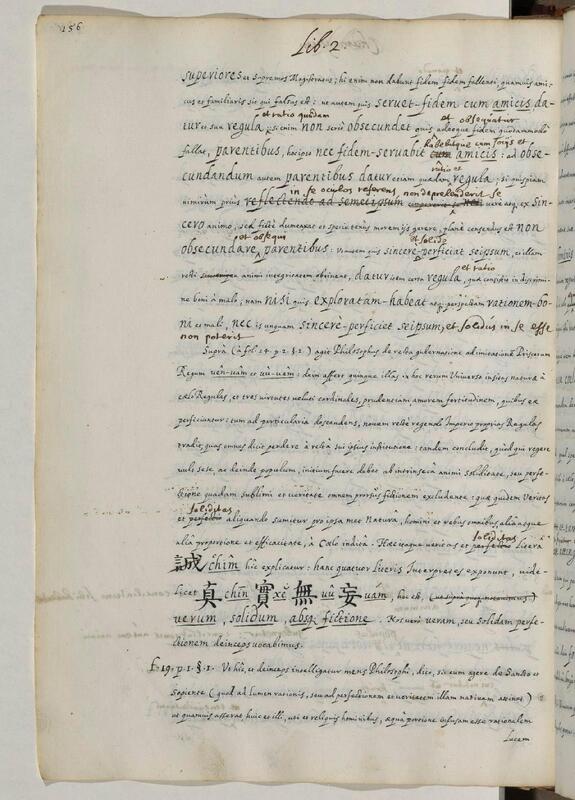 156
Lib. 2
superiores et supremos Magistratus; hi enim non dabunt fidem fidem fallenti, quamuis ami-
cus et familiaris sic qui falsus est: ne autem quis seruet-fidem cum amicis da-
et ratio quædam et obsequatur
tur et sua regula; si enim non seriò obsecundet quis adeoque fidem quodammodo
habebitque cum socijs et
fallat, parentibus, hoc ipso nec fidem-seruabit cum amicis: ad obse-
ratio et
cundandum autem parentibus datur etiam quædam regula; si quispiam
in se oculos referens, non deprehenderit se
nimirum prius reflectendo ad semetipsum nec verè atq. ex sin-
cero animo, sed fictè dumtaxat et specie tenus morem ijs gerere, planè censendus est non
et obsequi et solidè
obsecundare parentibus: Vnicuique autem quis sincerè perficiat seipsum, et illam
et ratio
recti animi integritatem obtineat, datur item certa regula, quæ consistit in discrimi-
ne boni à malo; nam nisi quis exploratam-habeat atq. perspectam rationem-bo-
ni et mali, nec is unquam sincerè-perficiet seipsum, et solidus in se esse
non poterit
Suprà (à fol. 14. p. 2. §. 1.) agit Philosophus de recta gubernatione ad imitationem Priscorum
Regum ven-uâm et vù-uâm: dein affert quinque illas in hoc rerum Universo insitas naturæ à
cælo Regulas, et tres virtutes veluti cardinales, prudentiam amorem fortitudinem, quibus eæ
perficiuntur: tum ad particularia descendens, nouem rectè regendi Imperij proprias Regulas
tradit, quas omnes dicit pendere à recta sui ipsius institutione: tandem concludit, quod qui regere
vult sese, ac deinde populum, initium facere debet ab intrinseca animi soliditate, seu perfe-
ctione quadam sublimi et veritate omnem prorsus fictionem excludente: quæ quidem Veritas
soliditas
et perfectio aliquando sumitur pro ipsa met Naturâ, homini et rebus omnibus, alia atque
soliditas
alia proportione et efficacitate, à Cælo inditâ. Hæc itaque veritas et perfectio Literâ
誠 chîm hîc explicatur: hanc quatuor Literis Interpretes exponunt, vide-
licet 真 chīn 實 xĕ 無 vû 妄 vám, hoc est,
verum, solidum, absq. fictione. Nos verò veram, seu solidam perfe-
ctionem deinceps vocabimus.
f. 19. p. 1. §. 1. Ut hîc, et deinceps intelligatur mens Philosophi, dico, sic eum agere de Sancto et
Sapiente (quod ad lumen rationis, seu ad perfectionem et veritatem illam nativam attinet)
ut quamuis asserat huic et illi, uti et reliquis hominibus, æquâ portione infusam esse rationalem
Lucem